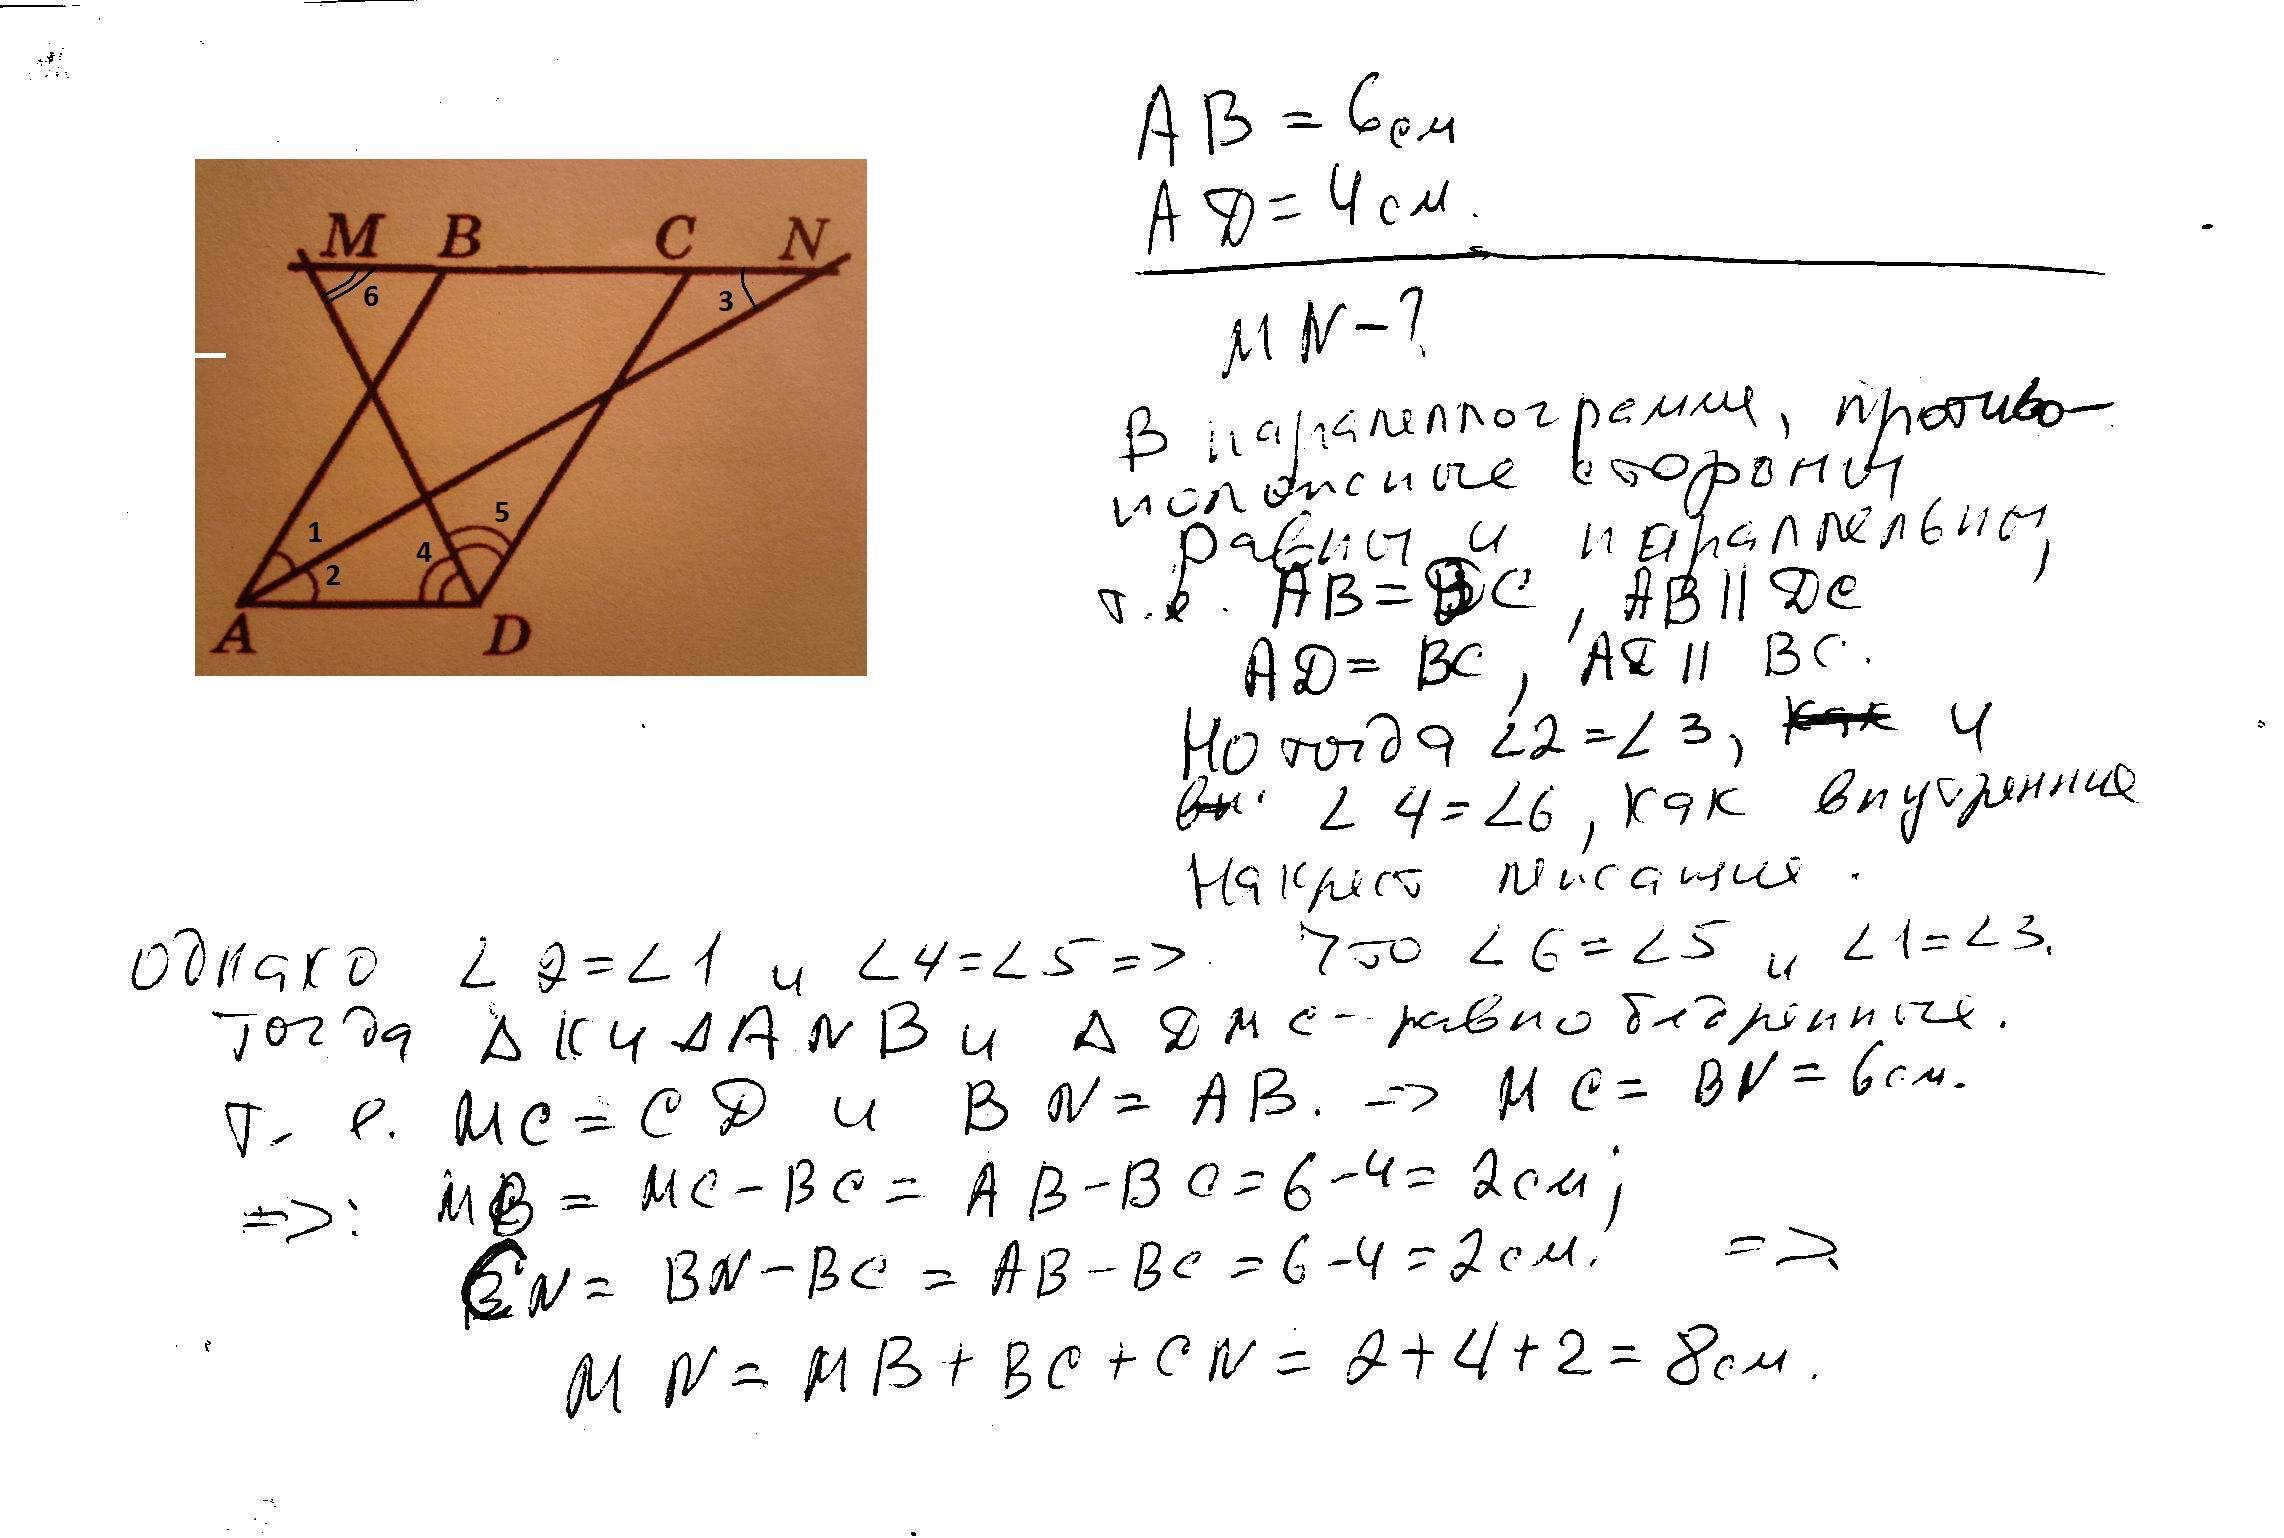 M B C N
6 3
1 2 4 5
A D
AB = 6см
AD = 4см.
MN - ?
В параленлограмме, противо-
положные стороны
равны и параллельны,
т.е. AB = DC, AB || DC
AD = BC, AD || BC.
Но тогда ∠2=∠3, как и
вн. ∠4=∠6, как внутренние
накрест лежащие.
Однако ∠2=∠1 и ∠4=∠5 => что ∠6=∠5 и ∠1=∠3.
Тогда Δ К и Δ ANB и Δ DMC - равнобедренные.
т. е. MC = CD и BN = AB. => MC = BN = 6см.
=>: MB = MC - BC = AB - BC = 6 - 4 = 2см;
CN = BN - BC = AB - BC = 6 - 4 = 2см. =>
MN = MB + BC + CN = 2 + 4 + 2 = 8см.